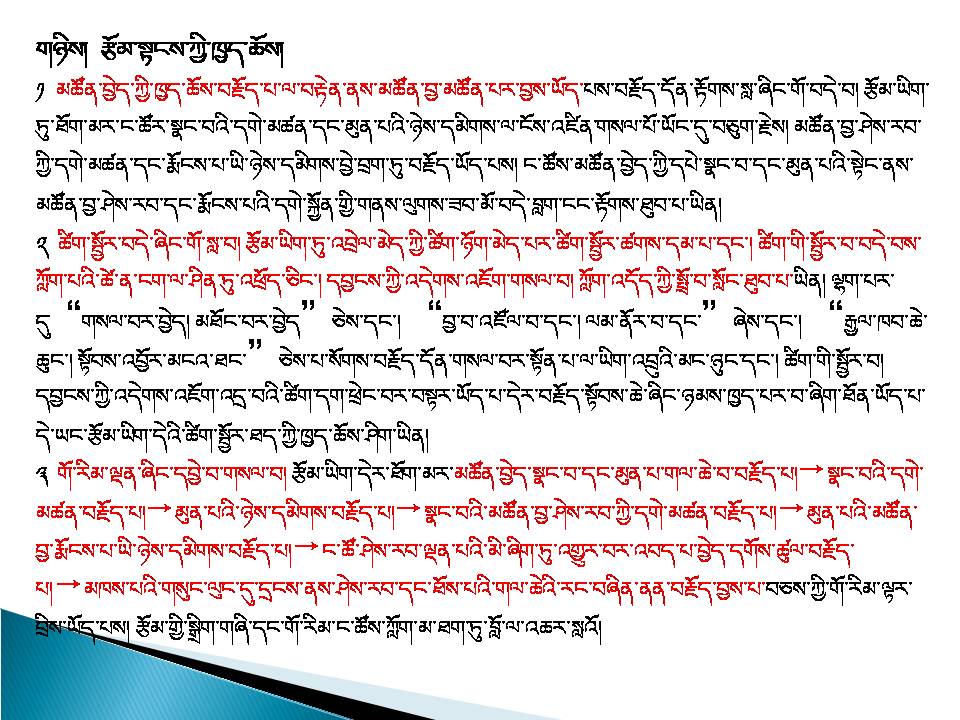 གཉིས། རྩོམ་སྟངས་ཀྱི་ཁྱད་ཆོས།
༡ མཚོན་བྱེད་ཀྱི་ཁྱད་ཆོས་བརྗོད་པ་ལ་བརྟེན་ནས་མཚོན་བྱ་མཚོན་པར་བྱས་ཡོད་པས་བརྗོད་དོན་རྟོགས་སླ་ཞིང་གོ་བདེ་བ། རྩོམ་ཡིག་
ཏུ་ཐོག་མར་ང་ཚོར་སྣང་བའི་དགེ་མཚན་དང་མུན་པའི་ཉེས་དམིགས་ལ་ངོས་འཛིན་གསལ་པོ་ཡོང་དུ་བཅུག་རྗེས། མཚོན་བྱ་ཤེས་རབ་
ཀྱི་དགེ་མཚན་དང་རྨོངས་པ་ཡི་ཉེས་དམིགས་བྱེ་བྲག་ཏུ་བརྗོད་ཡོད་པས། ང་ཚོས་མཚོན་བྱེད་ཀྱི་དཔེ་སྣང་བ་དང་མུན་པའི་སྟེང་ནས་
མཚོན་བྱ་ཤེས་རབ་དང་རྨོངས་པའི་དགེ་སྐྱོན་གྱི་གནས་ལུགས་ཟབ་མོ་བདེ་བླག་ངང་རྟོགས་ཐུབ་པ་ཡིན།
༢ ཚིག་སྦྱོར་བདེ་ཞིང་གོ་སླ་བ། རྩོམ་ཡིག་ཏུ་འབྲེལ་མེད་ཀྱི་ཚིག་ཉོག་མེད་པར་ཚིག་སྦྱོར་ཚགས་དམ་པ་དང་། ཚིག་གི་སྦྱོར་བ་བདེ་བས་
ཀློག་པའི་ཚེ་ན་ངག་ལ་ཤིན་ཏུ་འཕྲོད་ཅིང་། དབྱངས་ཀྱི་འདེགས་འཇོག་གསལ་བ། ཀློག་འདོད་ཀྱི་སྤྲོ་བ་སློང་ཐུབ་པ་ཡིན། ལྷག་པར་
དུ “གསལ་བར་བྱེད། མཐོང་བར་བྱེད” ཅེས་དང་། “བྱ་བ་འཛོལ་བ་དང་། ལམ་ནོར་བ་དང་” ཞེས་དང་། “རྒྱལ་ཁབ་ཆེ་
ཆུང་། སྟོབས་འབྱོར་མངའ་ཐང་” ཅེས་པ་སོགས་བརྗོད་དོན་གསལ་བར་སྟོན་པ་ལ་ཡིག་འབྲུའི་མང་ཉུང་དང་། ཚིག་གི་སྦྱོར་བ།
དབྱངས་ཀྱི་འདེགས་འཇོག་འདྲ་བའི་ཚིག་དག་ཕྲེང་བར་བསྟར་ཡོད་པ་དེར་བརྗོད་སྟོབས་ཆེ་ཞིང་ཉམས་ཁྱད་པར་བ་ཞིག་ཐོན་ཡོད་པ་
དེ་ཡང་རྩོམ་ཡིག་དེའི་ཚིག་སྦྱོར་ཐད་ཀྱི་ཁྱད་ཆོས་ཤིག་ཡིན།
༣ གོ་རིམ་ལྡན་ཞིང་དབྱེ་བ་གསལ་བ། རྩོམ་ཡིག་དེར་ཐོག་མར་མཚོན་བྱེད་སྣང་བ་དང་མུན་པ་གལ་ཆེ་བ་བརྗོད་པ།→སྣང་བའི་དགེ་
མཚན་བརྗོད་པ།→མུན་པའི་ཉེས་དམིགས་བརྗོད་པ།→སྣང་བའི་མཚོན་བྱ་ཤེས་རབ་ཀྱི་དགེ་མཚན་བརྗོད་པ།→མུན་པའི་མཚོན་
བྱ་རྨོངས་པ་ཡི་ཉེས་དམིགས་བརྗོད་པ།→ང་ཚོ་ཤེས་རབ་ལྡན་པའི་མི་ཞིག་ཏུ་འགྱུར་བར་འབད་པ་བྱེད་དགོས་ཚུལ་བརྗོད་
པ།→མཁས་པའི་གསུང་ལུང་དུ་དྲངས་ནས་ཤེས་རབ་དང་ཐོས་པའི་གལ་ཆེའི་རང་བཞིན་ནན་བརྗོད་བྱས་པ་བཅས་ཀྱི་གོ་རིམ་ལྟར་
བྲིས་ཡོད་པས། རྩོམ་གྱི་སྒྲིག་གཞི་དང་གོ་རིམ་ང་ཚོས་ཀློག་མ་ཐག་ཏུ་བློ་ལ་འཆར་སླའོ།